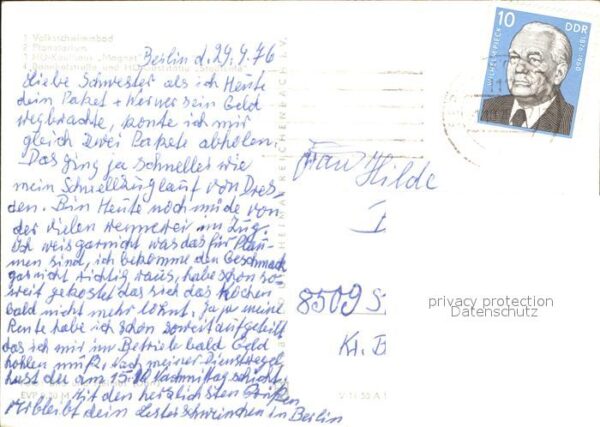 1 Volksschwimmbad
2 Planetarium
3 HO-Kaufhaus "Magnet"
Berlin d. 29.4.76
Liebe Schwester als ich Heute
dein Paket + Werner sein Geld
wegbrachte, konte ich mir
gleich zwei Pakete abholen.
Das ging ja schneller wie
mein Schnellzuglauf von Dres-
den. Bin Heute noch müde von
der vielen im Zug.
Ich weis garnicht was das für Plau-
men sind, ich bekomme den Geschmack
garnicht richtig raus, habe schon so
weit gekostet das sich das Kochen
bald nicht mehr lohnt. Ja ja meine
Rente habe ich schon soweit aufgeteilt
das ich mir im Betriebe bald Geld
hohlen muß, nach meiner Dienstregel
hast du am Nachmittagschicht
Mit den herzlichsten Grüßen
verbleibt dein in Berlin
EVP
V 11 50 A 1
REICHENBACH I. V.
10
DDR
WILHELM PIECK
1876-1960
Frau Hilde
8509 S
Kr. B
privacy protection
Datenschutz